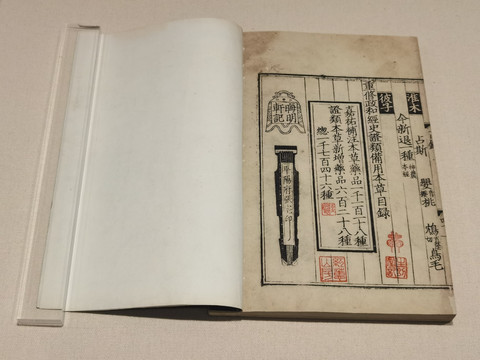 准木
占斯 嬰桃 鳥毛
彼子
今新退一種
重修政和經史證類備用本草目錄
嘉祐補注本草藥品一千一百一十八種
證類本草新增藥品六百二十八種
總一千七百四十六種
晦明
軒記
平陽府張宅印